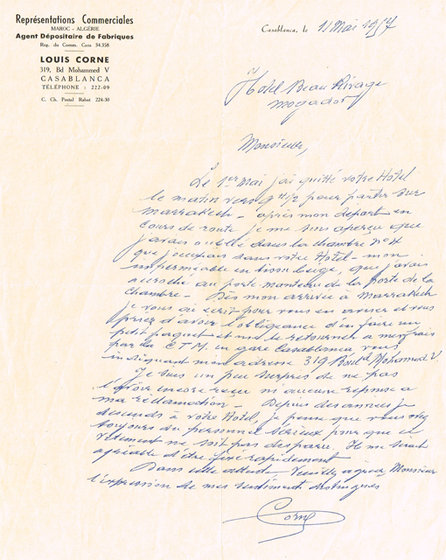 Représentations Commerciales
MAROC - ALGÉRIE
Agent Dépositaire de Fabriques
Rég. du Comm. Casa 34.358
LOUIS CORNE
319, Bd Mohammed V
CASABLANCA
TÉLÉPHONE : 222-09
C. Ch. Postal Rabat 224-30
Casablanca, le 11 Mai 1957
Hotel Beau Rivage
Mogador
Monsieur,
Le 1er mai j'ai quitté votre Hôtel
le matin vers 9 1/2 pour partir sur
Marrakech - après mon départ en
cours de route je me suis aperçu que
j'avais oublié dans la chambre n°4
que j'occupais dans votre Hotel - mon
imperméable en tissu beige, que j'avais
accroché au porte manteau de la porte de la
chambre - Dès mon arrivée à Marrakech
je vous ai écrit pour vous en aviser et vous
priser d'avoir l'obligeance d'en faire un
petit paquet et me le retourner à mes frais
par la C T M. en gare Casablanca vous
indiquant mon adresse 319 Bould Mohammed V.
Je suis un peu surpris de ne pas
l'avoir encore reçu ni aucune réponse à
ma réclamation. Depuis des années je
descends à votre Hotel, je pense que vous avez
toujours du personnel sérieux pour que ce
vêtement ne soit pas disparu. Il me serait
agréable d'être fixé rapidement
Dans cette attente Veuillez agréer Monsieur
l'expression de mes sentiments distingués
Corne